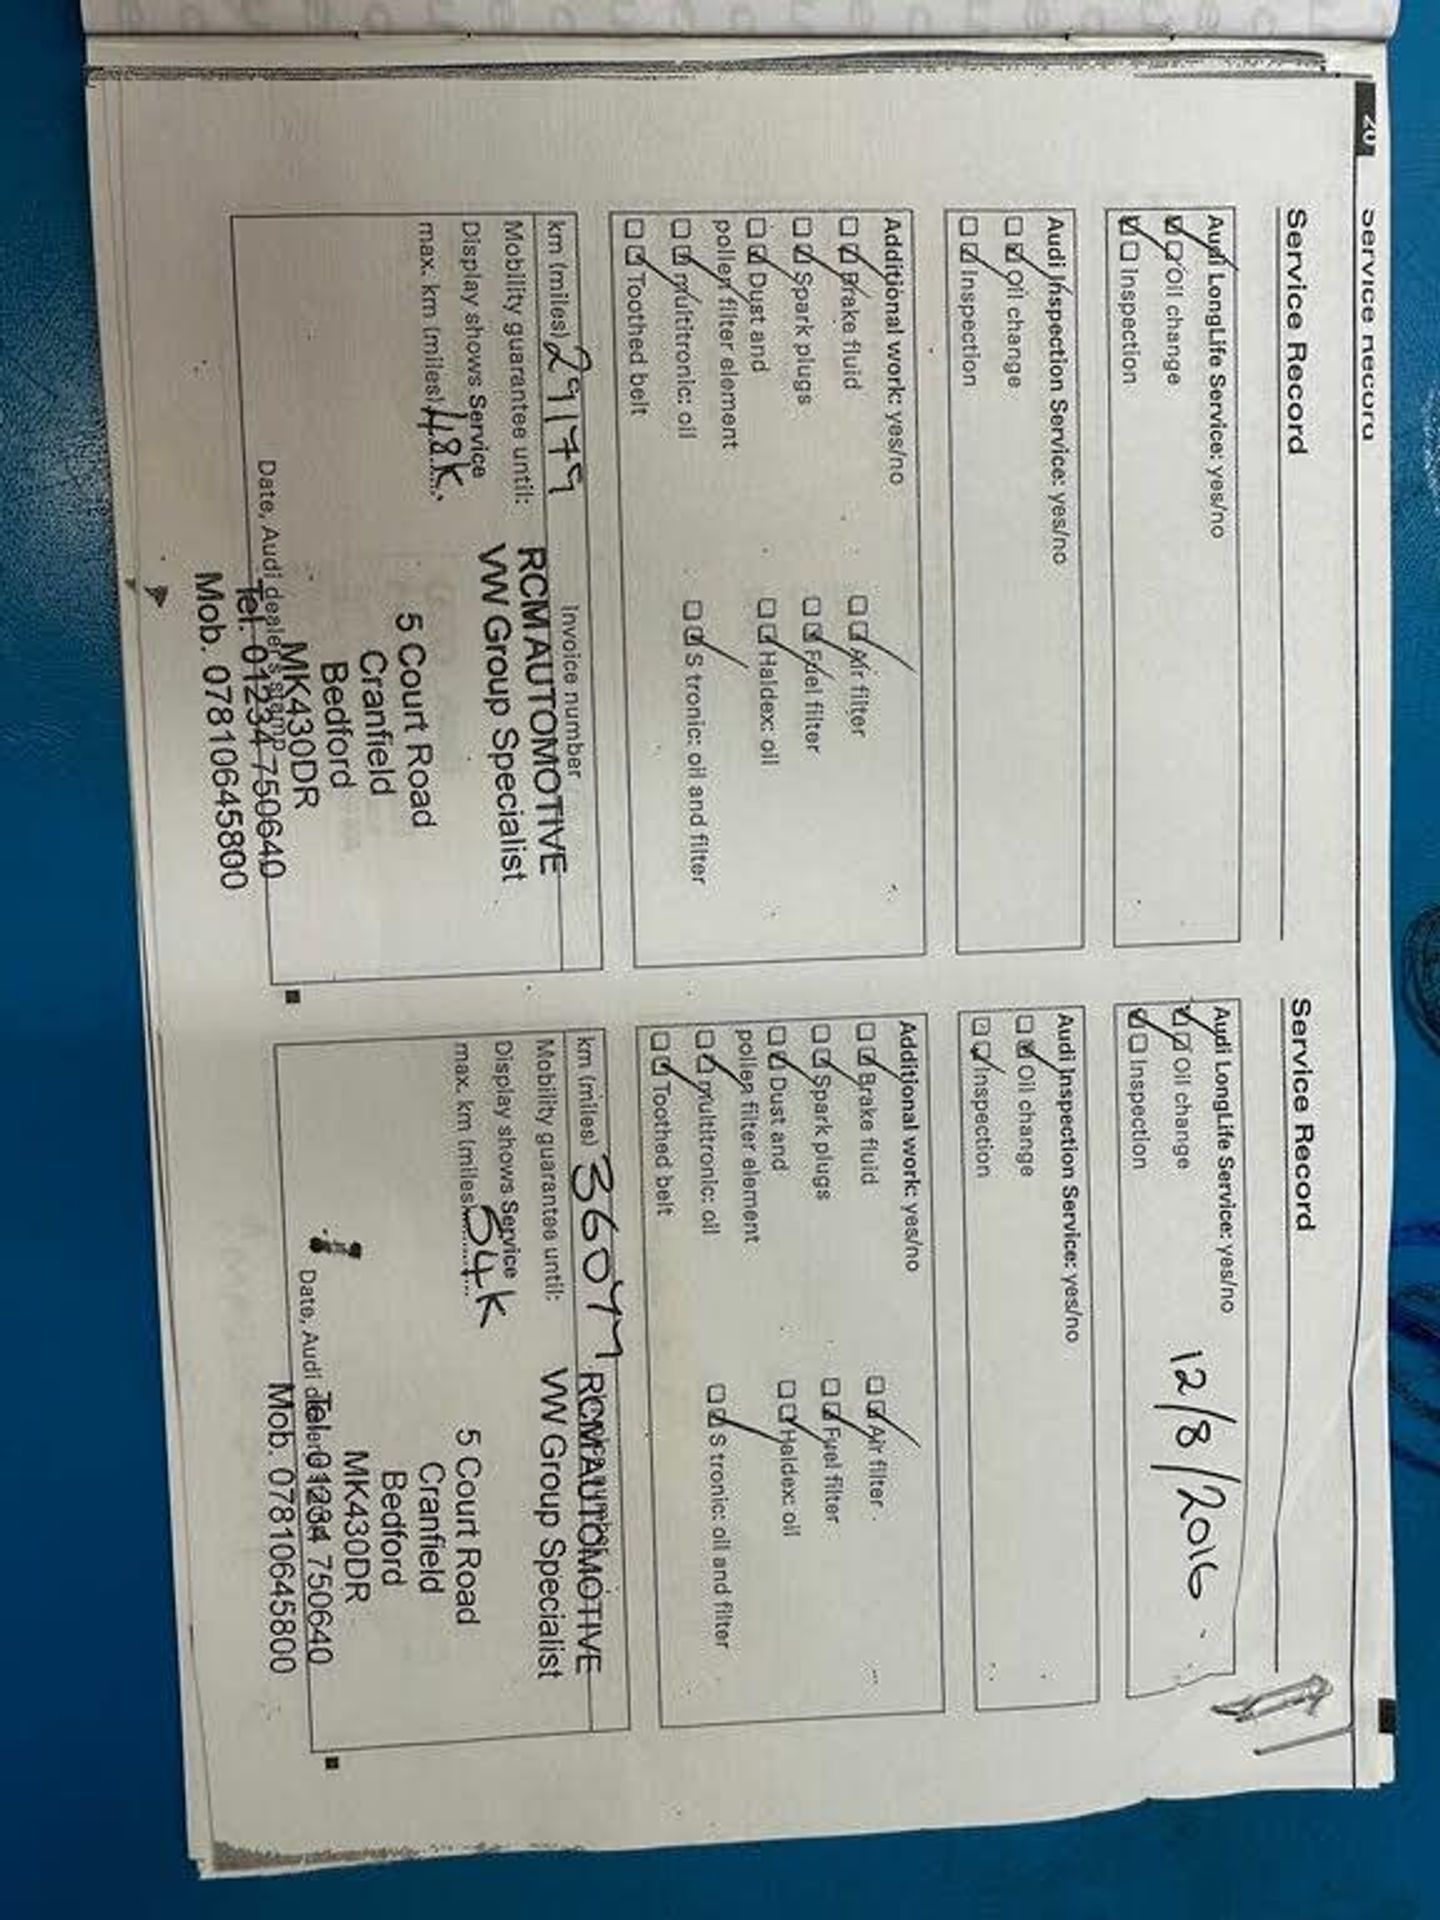 20 Service Record
Service Record
Audi LongLife Service: yes/no
Oil change
Inspection
Audi Inspection Service: yes/no
Oil change
Inspection
Additional work: yes/no
Brake fluid
Air filter
Spark plugs
Fuel filter
Dust and
pollen filter element
Haldex: oil
multitronic: oil
S tronic: oil and filter
Toothed belt
km (miles) 29179
Invoice number
Mobility guarantee until:
Display shows Service
max. km (miles) 48K
RCM AUTOMOTIVE
VW Group Specialist
5 Court Road
Cranfield
Bedford
MK430DR
Tel. 01234 750640
Mob. 07810645800
Date, Audi dealer's stamp
Service Record
Audi LongLife Service: yes/no
12/8/2016
Oil change
Inspection
Audi Inspection Service: yes/no
Oil change
Inspection
Additional work: yes/no
Brake fluid
Air filter
Spark plugs
Fuel filter
Dust and
pollen filter element
Haldex: oil
multitronic: oil
S tronic: oil and filter
Toothed belt
km (miles)
Mobility guarantee until:
Display shows Service
max. km (miles) 54K
RCM AUTOMOTIVE
VW Group Specialist
5 Court Road
Cranfield
Bedford
MK430DR
Tel. 01234 750640
Mob. 07810645800
Date, Audi